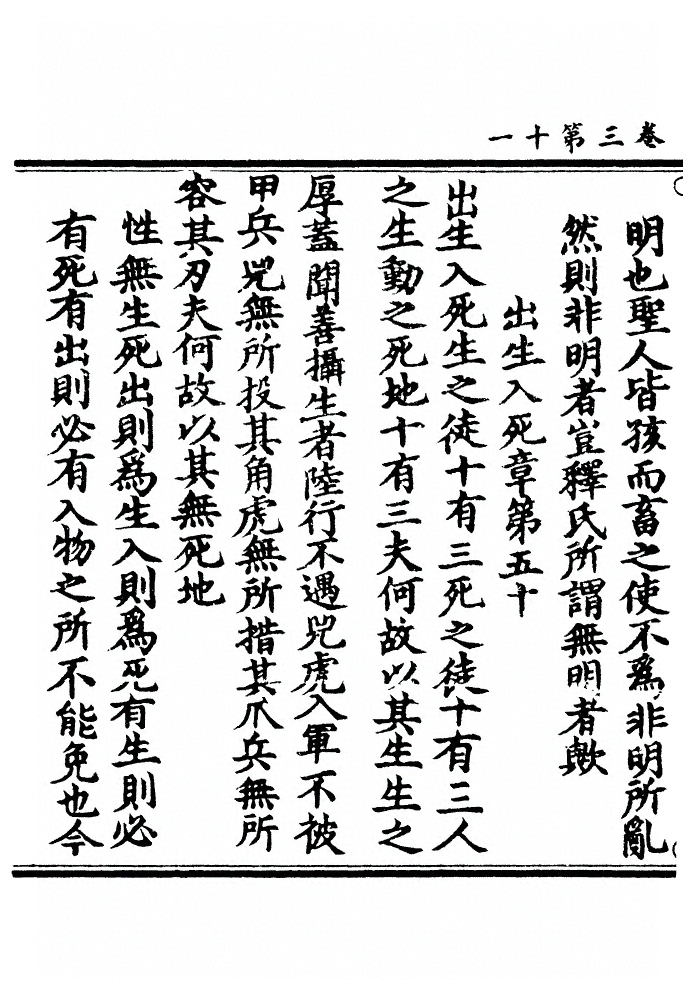 卷三第十一
明也聖人皆孩而畜之使不爲非明所亂
然則非明者豈釋氏所謂無明者歟
出生入死章第五十
出生入死生之徒十有三死之徒十有三人
之生動之死地十有三夫何故以其生生之
厚蓋聞善攝生者陸行不遇兕虎入軍不被
甲兵兕無所投其角虎無所措其爪兵無所
容其刃夫何故以其無死地
性無生死出則爲生入則爲死有生則必
有死有出則必有入物之所不能免也今